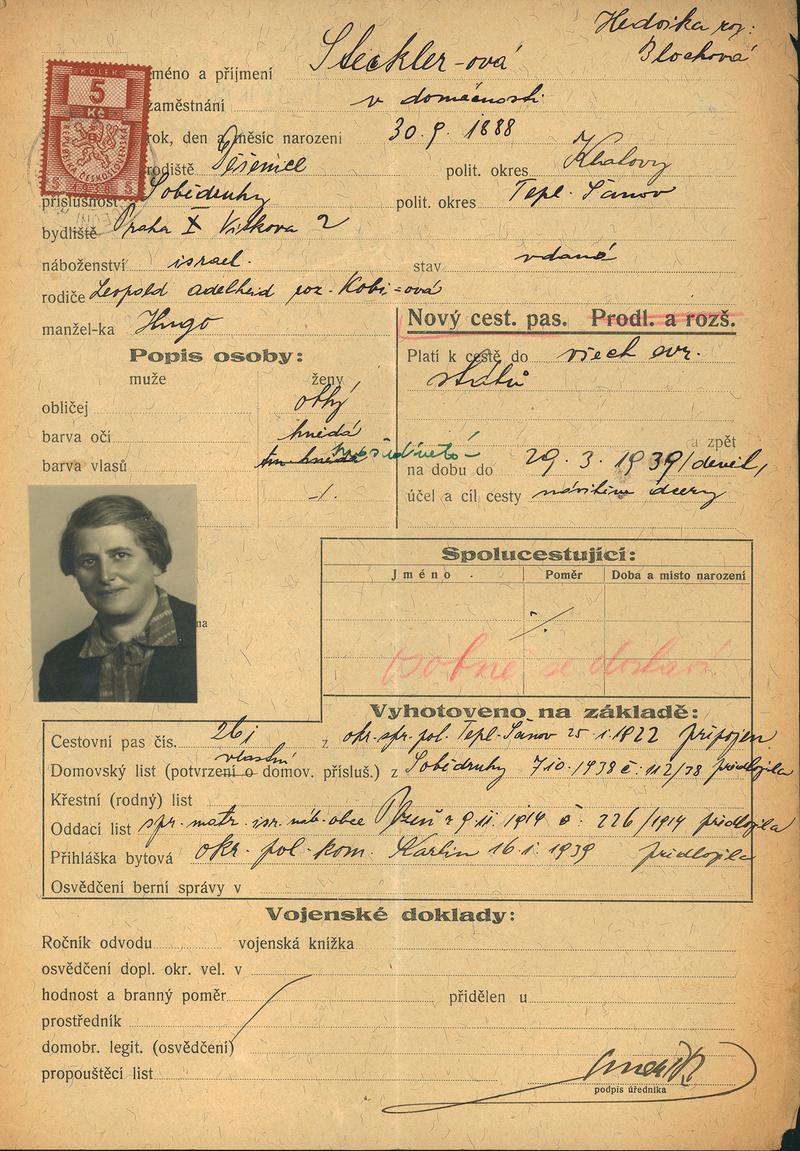 Hedvika roz:
Steckler-ová Blochová
KOLEK
5
Kč
REPUBLIKA ČESKOSLOVENSKÁ
5 5
jméno a příjmení
zaměstnání v domácnosti
rok, den a měsíc narození 30. 9. 1888
rodiště polit. okres
příslušnost Sobědruhy polit. okres Tepl. Šanov
bydliště Praha X Vítkova 2
náboženství israel. stav vdaná
rodiče Leopold Adelheid roz.
manžel-ka Hugo
Nový cest. pas. Prodl. a rozš.
Popis osoby:
muže ženy
Platí k cestě do všech evr.
států
obličej
barva očí hnědá
barva vlasů tm. hnědá
a zpět
na dobu do 29. 3. 1939
účel a cíl cesty dcery
-/.
na
Spolucestující:
Jméno Poměr Doba a místo narození
./.
osobně se dostaví
Vyhotoveno na základě:
Cestovní pas čís. z okr. spr. pol. Tepl-Šanov připojen
vlastní
Domovský list (potvrzení o domov. přísluš.) z Sobědruhy 7.10.1938 č: 112/38 předložila
Křestní (rodný) list
Oddací list spr. matr. isr. náb. obce 1914 č. 226/1914 předložila
Přihláška bytová okr. pol. kom. Karlín 16. 1. 1939 předložila
Osvědčení berní správy v
Vojenské doklady:
Ročník odvodu vojenská knížka
osvědčení dopl. okr. vel. v
hodnost a branný poměr přidělen u
prostředník
domobr. legit. (osvědčení)
propouštěcí list
podpis úředníka